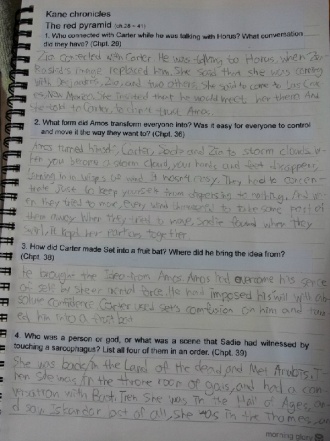 Kane chronicles
The red pyramid (ch.28 ~ 41)
1. Who connected with Carter while he was talking with Horus? What conversation
did they have? (Chpt. 28)
Zia connected with Carter. He was talking to Horus, when Zia
Rashid's image replaced him. She said that she was coming
with Desjardins, Zia and two others. She said to come to Las Cru
ces, New Mexico. She insisted that he would meet her there. And
she told to Carter, to do not trust Amos.
2. What form did Amos transform everyone into? Was it easy for everyone to control
and move it the way they want to? (Chpt. 36)
Amos turned himself, Carter, Sadie and Zia to storm clouds. W
hen you become a storm cloud, your hands and feet disappears,
turning in to wisps of wind. It wasn't easy. They had to concen-
trate just to keep yourself from dispersing to nothing. And wh
en they tried to move, every wind threatened to take some part of
them away. When they tried to move, Sadie found when they
will, it kept her particles together.
3. How did Carter made Set into a fruit bat? Where did he bring the idea from?
(Chpt. 38)
He brought the idea from Amos. Amos had overcome his sense
of self by sheer mental force. He had imposed his will with ab
solute confidence. Carter used Set's confusion on him and turn
ed him into a fruit bat.
4. Who was a person or god, or what was a scene that Sadie had witnessed by
touching a sarcophagus? List all four of them in an order. (Chpt. 39)
She was back in the Land of the dead and Met Anubis. T
hen She was in the throne room of gods, and had a con
versation with Bast. Then She was in the Hall of Ages, and
saw Iskandar. Last of all, She was in the Thames, and
morning glory